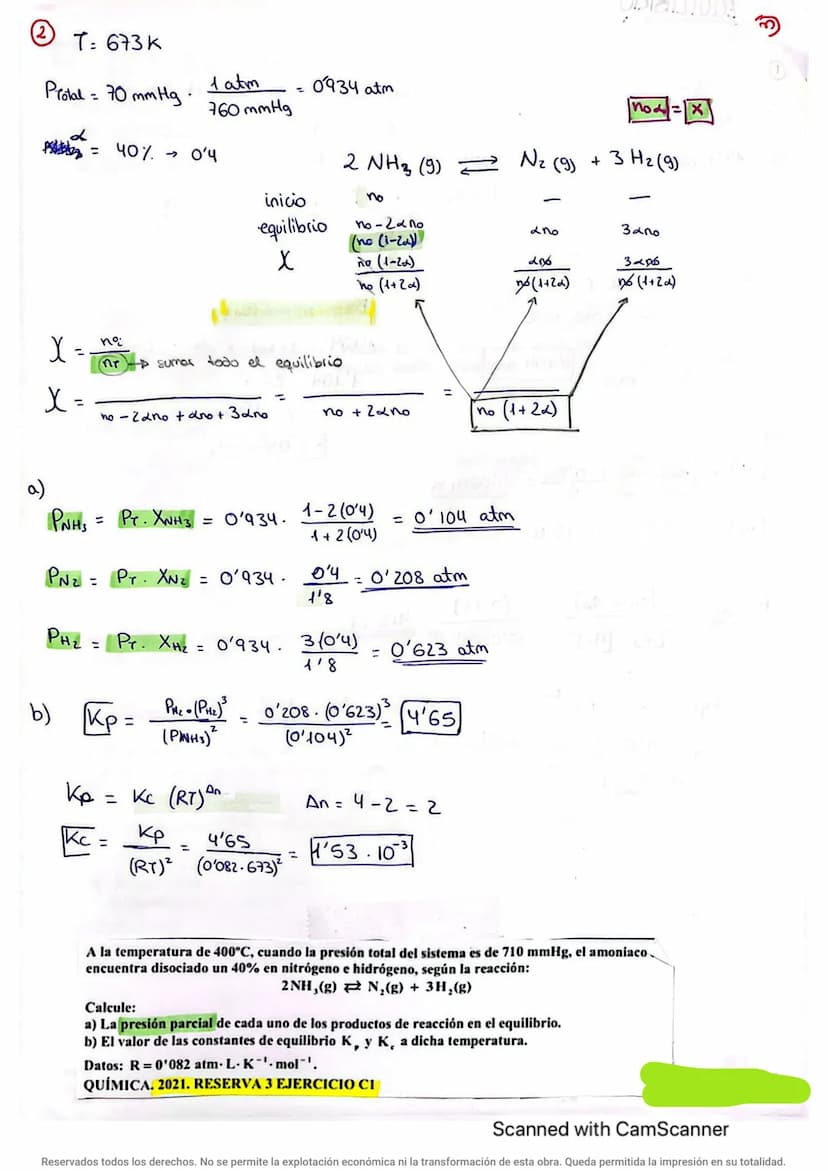 3)
1
② T: 673K
Ptotal = 70 mmHg · 1 atm / 760 mmHg = 0'934 atm
noα = x
α = 40% → 0'4
2 NH₃ (g) ⇌ N₂ (g) + 3 H₂ (g)
inicio no — —
equilibrio no - 2αno αno 3αno
(no (1-2α))
X no (1-2α) / no (1+2α) αno / no (1+2α) 3αno / no (1+2α)
X = nº: / nT → sumas todo el equilibrio
X = / no - 2αno + αno + 3αno = / no + 2αno = / no (1+2α)
a)
PNH₃ = PT · XNH3 = 0'934 · 1-2(0'4) / 1+2(0'4) = 0'104 atm
PN2 = PT · XN2 = 0'934 · 0'4 / 1'8 = 0'208 atm
PH2 = PT · XH2 = 0'934 · 3(0'4) / 1'8 = 0'623 atm
b) Kp = PN2 · (PH2)³ / (PNH3)² = 0'208 · (0'623)³ / (0'104)² = 4'65
Kp = Kc (RT)^Δn Δn = 4 - 2 = 2
Kc = Kp / (RT)² = 4'65 / (0'082 · 673)² = 1'53 · 10⁻³
A la temperatura de 400ºC, cuando la presión total del sistema es de 710 mmHg, el amoniaco
encuentra disociado un 40% en nitrógeno e hidrógeno, según la reacción:
2NH₃(g) ⇌ N₂(g) + 3H₂(g)
Calcule:
a) La presión parcial de cada uno de los productos de reacción en el equilibrio.
b) El valor de las constantes de equilibrio Kp y Kc a dicha temperatura.
Datos: R = 0'082 atm·L·K⁻¹·mol⁻¹.
QUÍMICA. 2021. RESERVA 3 EJERCICIO C1
Scanned with CamScanner
Reservados todos los derechos. No se permite la explotación económica ni la transformación de esta obra. Queda permitida la impresión en su totalidad.